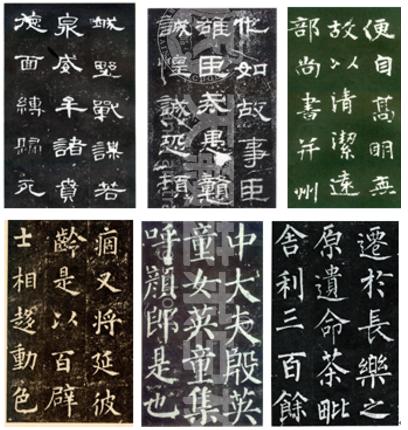 城野戰謀若
泉威牟諸賁
德面縛歸死
他如故事臣
雄臣戒愚戇
誠惶誠恐頓
便自髙明無
故以清潔遠
部尚書并州
痼又将延彼
齡是以百辟
士相趍動色
中大夫殷英
童女英童集
呼顏郎是也
遷於長樂之
原遺命茶毗
舎利三百餘